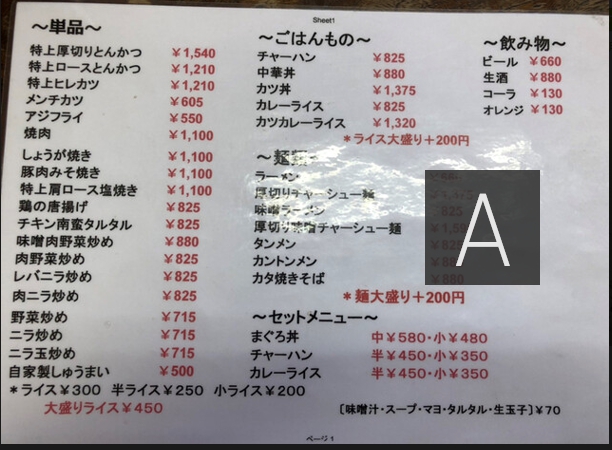 Sheet1
～単品～
特上厚切りとんかつ ￥1,540
特上ロースとんかつ ￥1,210
特上ヒレカツ ￥1,210
メンチカツ ￥605
アジフライ ￥550
焼肉 ￥1,100
しょうが焼き ￥1,100
豚肉みそ焼き ￥1,100
特上肩ロース塩焼き ￥1,100
鶏の唐揚げ ￥825
チキン南蛮タルタル ￥825
味噌肉野菜炒め ￥880
肉野菜炒め ￥825
レバニラ炒め ￥825
肉ニラ炒め ￥825
野菜炒め ￥715
ニラ炒め ￥715
ニラ玉炒め ￥715
自家製しゅうまい ￥500
＊ライス￥300 半ライス￥250 小ライス￥200
大盛りライス￥450
～ごはんもの～
チャーハン ￥825
中華丼 ￥880
カツ丼 ￥1,375
カレーライス ￥825
カツカレーライス ￥1,320
＊ライス大盛り＋200円
～麺類～
ラーメン
厚切りチャーシュー麺
味噌ラーメン
厚切り味噌チャーシュー麺
タンメン
カントンメン
カタ焼きそば
＊麺大盛り＋200円
～セットメニュー～
まぐろ丼 中￥580・小￥480
チャーハン 半￥450・小￥350
カレーライス 半￥450・小￥350
〔味噌汁・スープ・マヨ・タルタル・生玉子〕￥70
～飲み物～
ビール ￥660
生酒 ￥880
コーラ ￥130
オレンジ ￥130
A
ページ 1